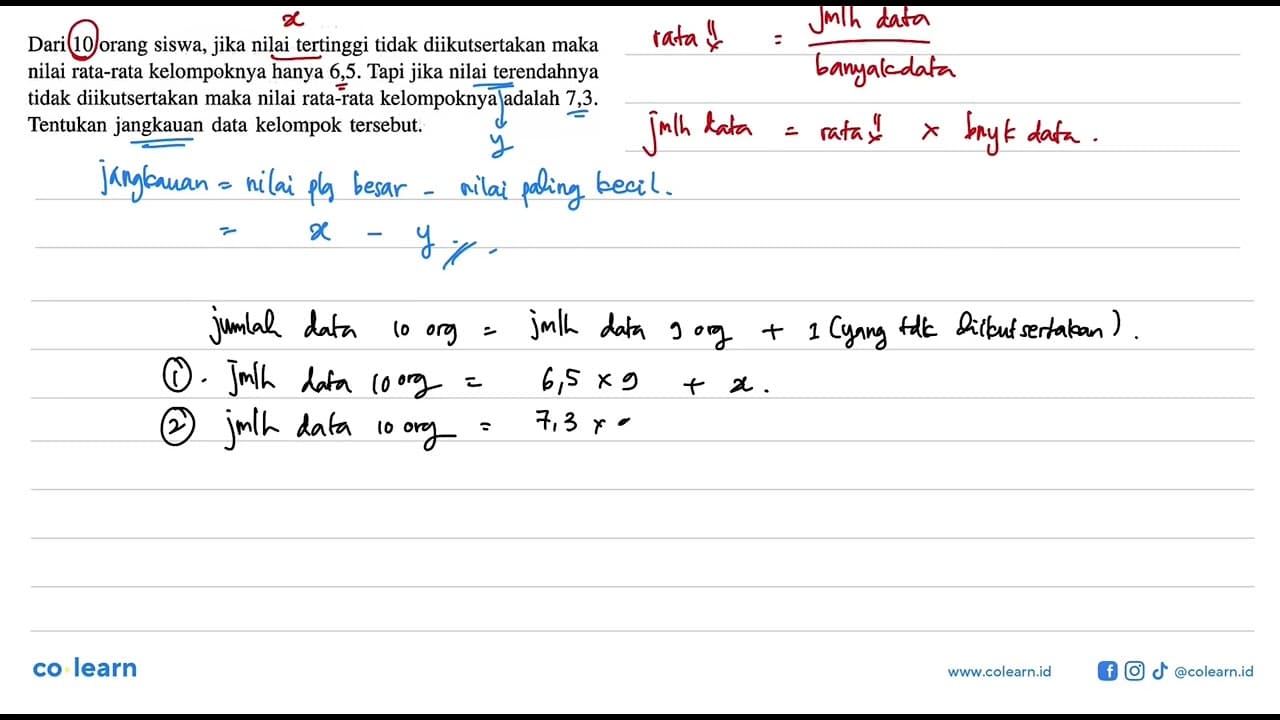 x
Dari 10 orang siswa, jika nilai tertinggi tidak diikutsertakan maka
nilai rata-rata kelompoknya hanya 6,5. Tapi jika nilai terendahnya
tidak diikutsertakan maka nilai rata-rata kelompoknya adalah 7,3.
Tentukan jangkauan data kelompok tersebut.
y
rata" = jmlh data
banyak data
jmlh data = rata" x bnyk data.
jangkauan = nilai plg besar - nilai paling kecil.
= x - y
jumlah data 10 org = jmlh data 9 org + 1 (yang tdk diikutsertakan).
1. jmlh data 10 org = 6,5 x 9 + x.
2 jmlh data 10 org = 7,3 x
co·learn
www.colearn.id
@colearn.id